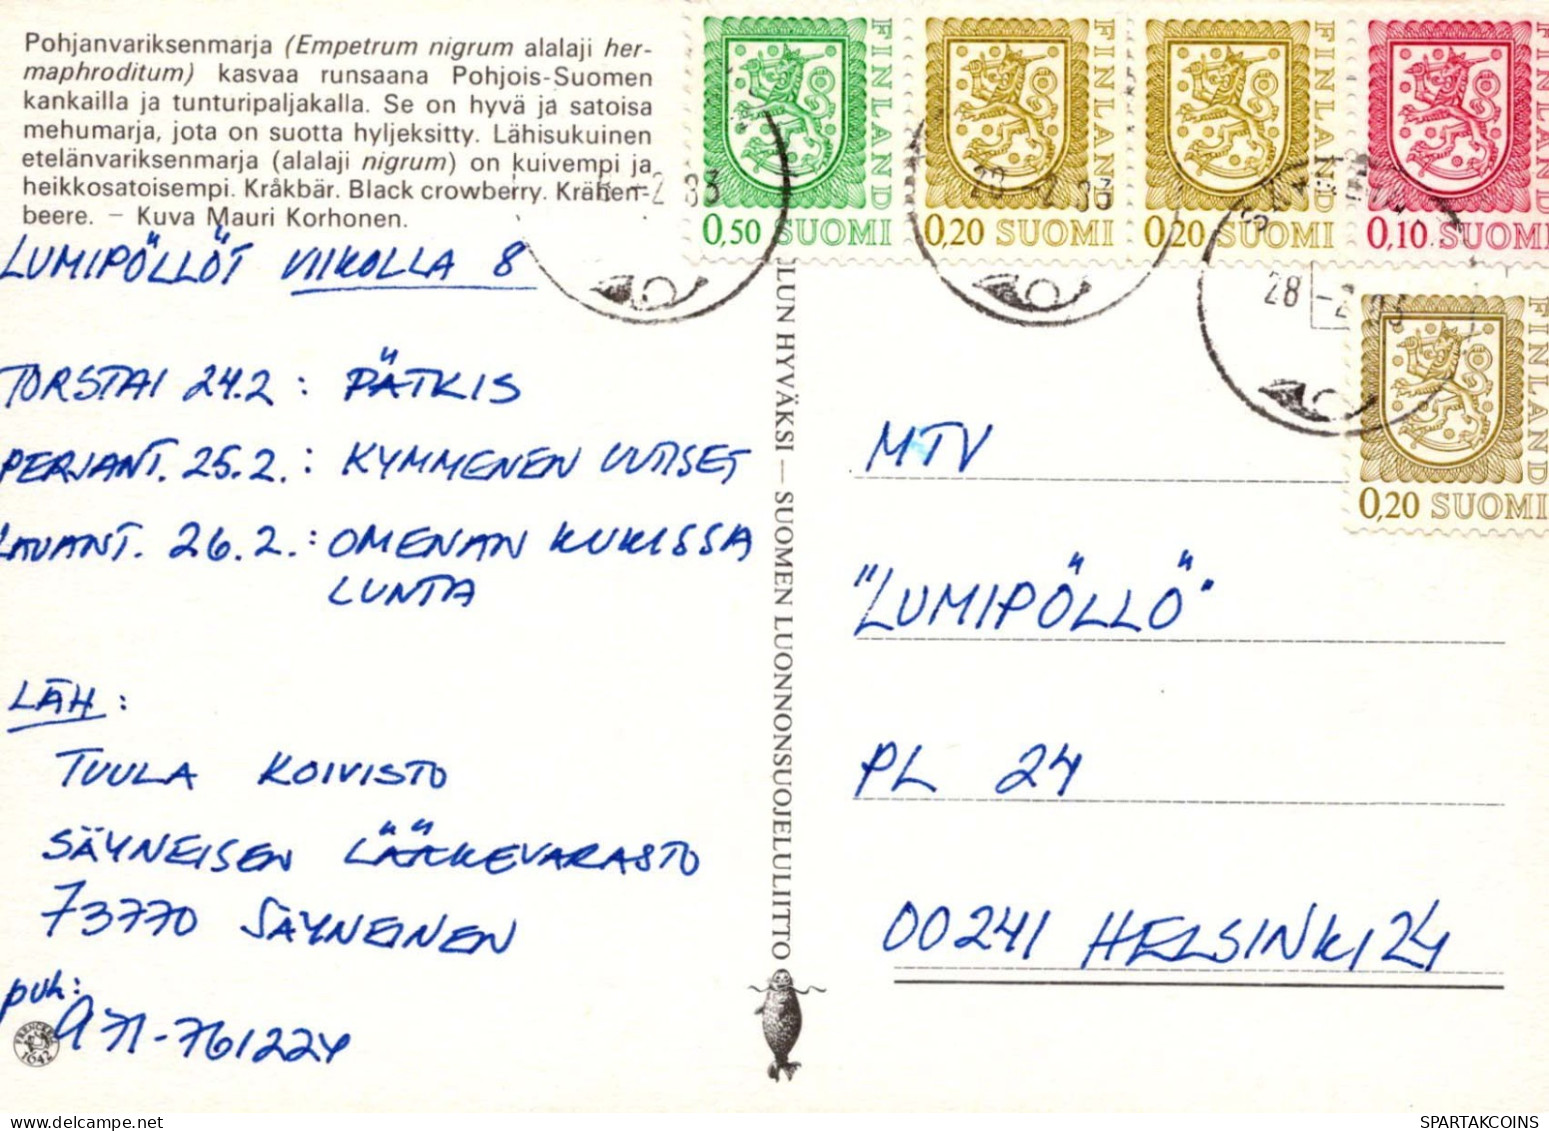 Pohjanvariksenmarja (Empetrum nigrum alalaji her-
maphroditum) kasvaa runsaana Pohjois-Suomen
kankailla ja tunturipaljakalla. Se on hyvä ja satoisa
mehumarja, jota on suotta hyljeksitty. Lähisukuinen
etelänvariksenmarja (alalaji nigrum) on kuivempi ja
heikkosatoisempi. Kråkbär. Black crowberry. Krähen-
beere. – Kuva Mauri Korhonen.
LUMIPÖLLÖT VIIKOLLA 8
TORSTAI 24.2 : PÄTKIS
PERJANT. 25.2. : KYMMENEN UUTISET
LAUANT. 26.2. : OMENAN KUKISSA
LUNTA
LÄH :
TUULA KOIVISTO
SÄYNEISEN LÄÄKEVARASTO
73770 SÄYNEINEN
puh:
971-761224
1642
LUN HYVÄKSI — SUOMEN LUONNONSUOJELULIITTO
FINLAND
0,50 SUOMI
FINLAND
0,20 SUOMI
FINLAND
0,20 SUOMI
FINLAND
0,10 SUOMI
FINLAND
0,20 SUOMI
-2 83
28 -2 83
28 -2 83
MTV
"LUMIPÖLLÖ"
PL 24
00241 HELSINKI 24
SPARTAKCOINS